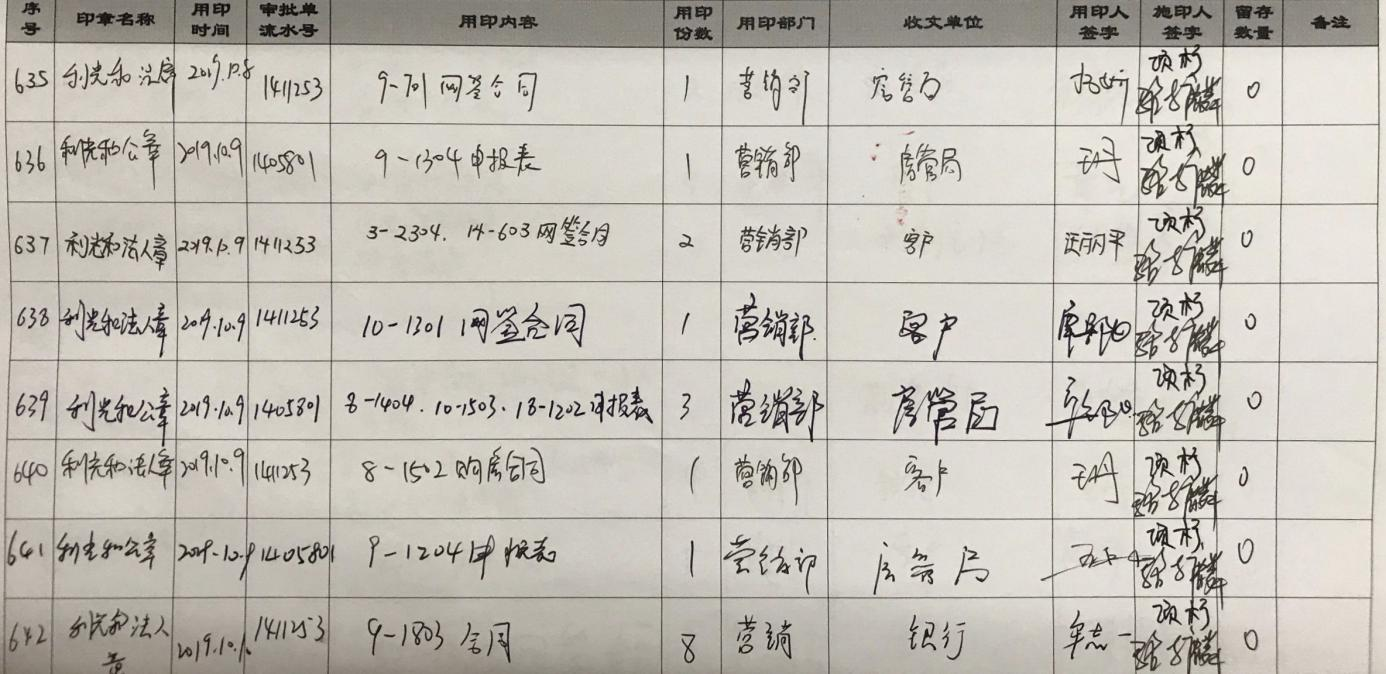 序号 印章名称 用印时间 审批单流水号 用印内容 用印份数 用印部门 收文单位 用印人签字 施印人签字 留存数量 备注
635 利光和法 2019.10.8 1411253 9-701网签合同 1 营销部 房管局 项杉 0
636 利光和公章 2019.10.9 1405801 9-1304申报表 1 营销部 房管局 王丹 项杉 0
637 利光和法人章 2019.10.9 1411253 3-2304. 14-603网签合同 2 营销部 客户 项杉 0
638 利光和法人章 2019.10.9 1411253 10-1301网签合同 1 营销部 客户 项杉 0
639 利光和公章 2019.10.9 1405801 8-1404.10-1503.18-1202申报表 3 营销部 房管局 项杉 0
640 利光和法人章 2019.10.9 1411253 8-1502购房合同 1 营销部 客户 王丹 项杉 0
641 利光和公章 2019.10.9 1405801 9-1204申报表 1 营销部 房管局 项杉 0
642 利光和法人章 2019.10. 1411253 9-1803合同 8 营销 银行 牟志一 项杉 0